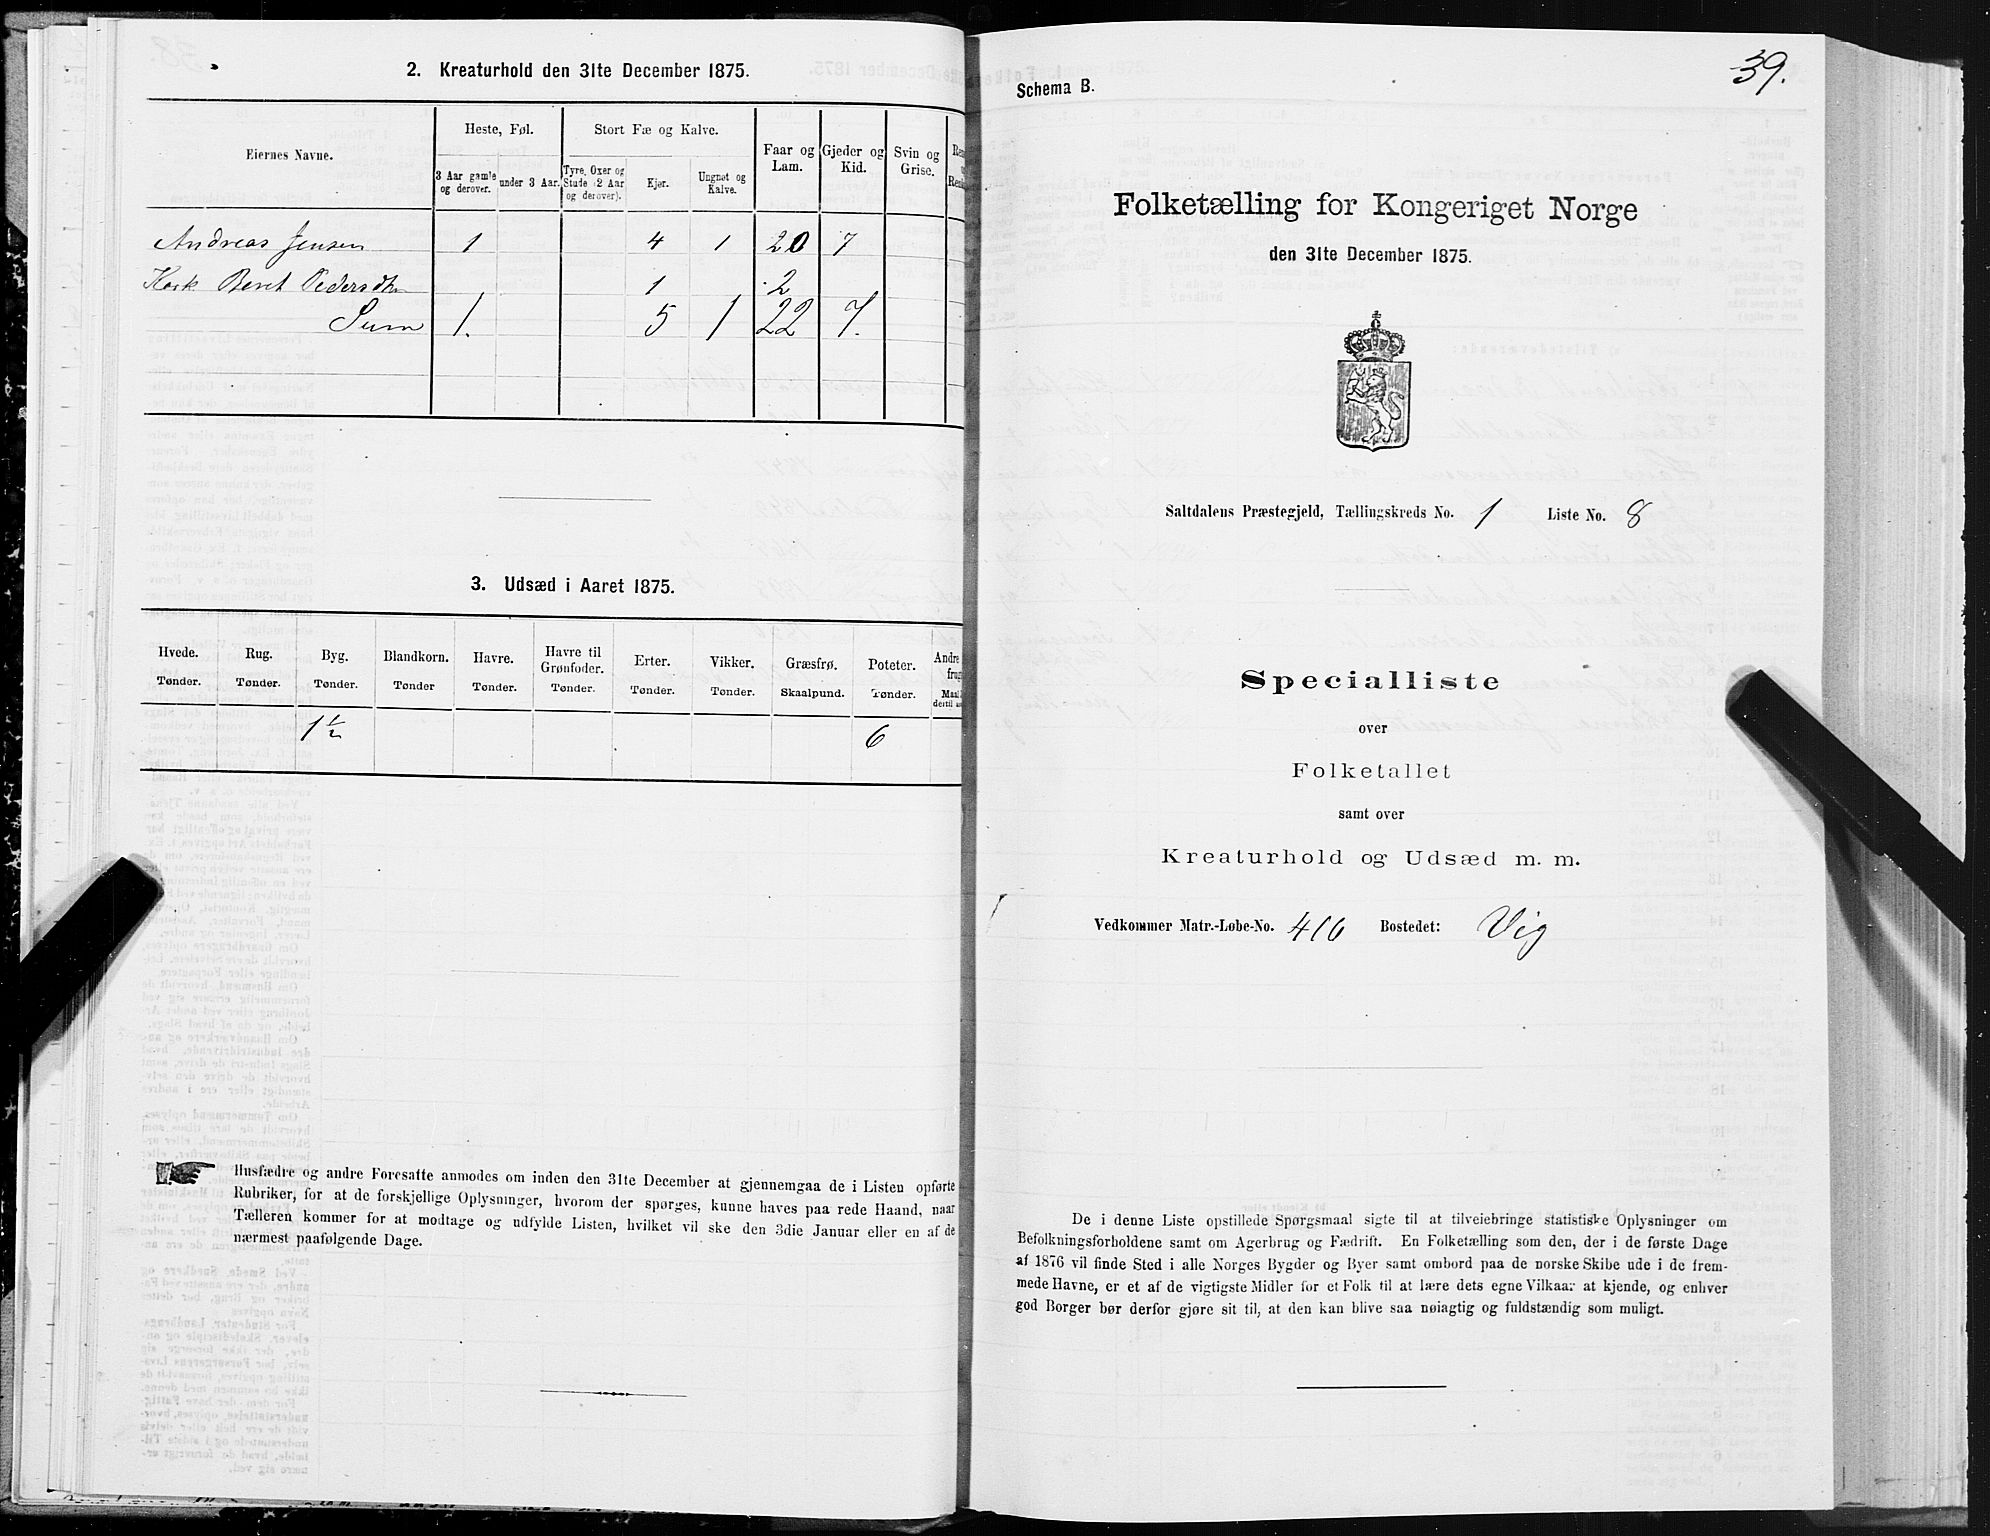 2. Kreaturhold den 31te December 1875.
Eiernes Navne.
Heste, Føl.
Stort Fæ og Kalve.
Faar og Lam.
Gjeder og Kid.
Svin og Grise.
3 Aar gamle og derover.
under 3 Aar.
Tyre, Oxer og Stude (2 Aar og derover).
Kjør.
Ungnøt og Kalve.
Andreas Jensen 1 4 1 20 7
Beret Pedersdtr 1 2
Sum 1. 5 1 22 7.
3. Udsæd i Aaret 1875.
Hvede. Rug. Byg. Blandkorn. Havre. Havre til Grønfoder. Erter. Vikker. Græsfrø. Poteter. Andre
Tønder. Tønder. Tønder. Tønder Tønder. Tønder. Tønder. Tønder. Skaalpund. Tønder.
1½ 6
Husfædre og andre Foresatte anmodes om inden den 31te December at gjennemgaa de i Listen opførte
Rubriker, for at de forskjellige Oplysninger, hvorom der spørges, kunne haves paa rede Haand, naar
Tælleren kommer for at modtage og udfylde Listen, hvilket vil ske den 3die Januar eller en af de
nærmest paafølgende Dage.
39.
Schema B.
Folketælling for Kongeriget Norge
den 31te December 1875.
Saltdalens Præstegjeld, Tællingskreds No. 1 Liste No. 8
Specialliste
over
Folketallet
samt over
Kreaturhold og Udsæd m. m.
Vedkommer Matr.-Løbe-No. 416 Bostedet: Vig
De i denne Liste opstillede Spørgsmaal sigte til at tilveiebringe statistiske Oplysninger om
Befolkningsforholdene samt om Agerbrug og Fædrift. En Folketælling som den, der i de første Dage
af 1876 vil finde Sted i alle Norges Bygder og Byer samt ombord paa de norske Skibe ude i de frem-
mede Havne, er et af de vigtigste Midler for et Folk til at lære dets egne Vilkaar at kjende, og enhver
god Borger bør derfor gjøre sit til, at den kan blive saa nøiagtig og fuldstændig som muligt.